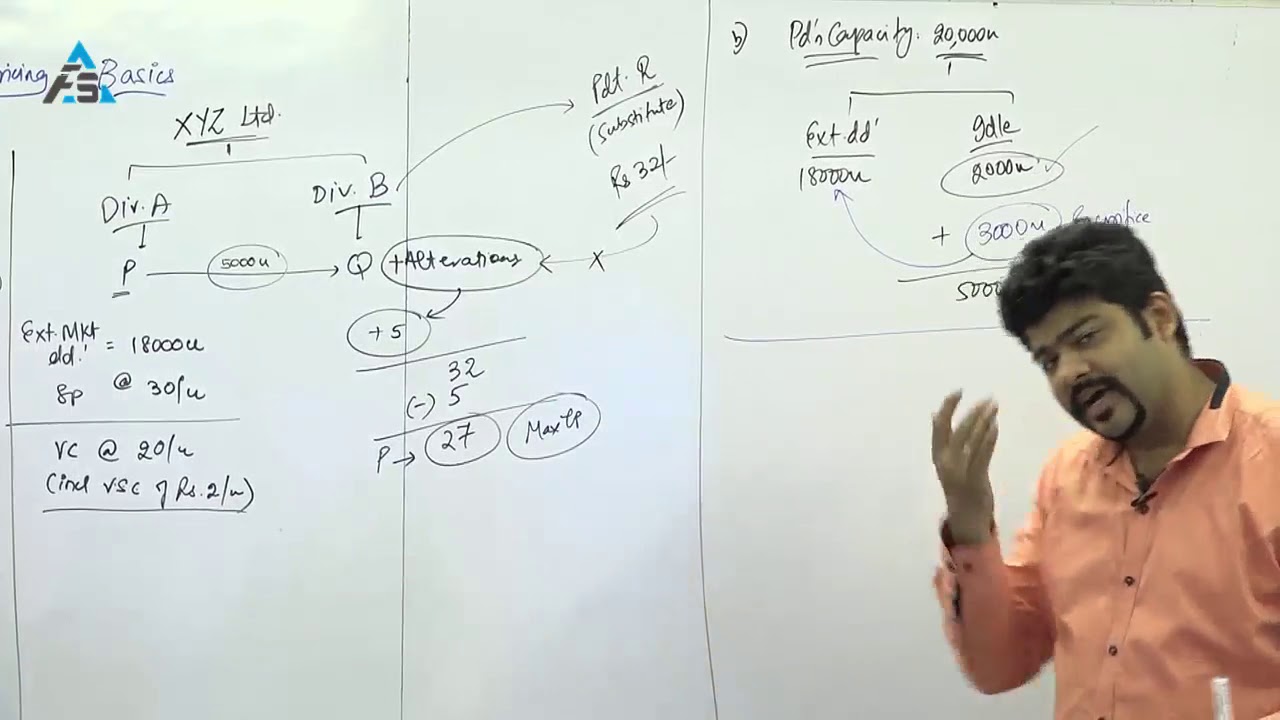 ricing Basics
FS
XYZ Ltd.
Div. A
Div. B
P
5000u
Q
+Alterations
Ext. Mkt
dd.' = 18000u
Sp @ 30/u
VC @ 20/u
(incl VSC of Rs. 2/u)
+5
32
(-) 5
P → 27
Max TP
Pdt. R
(Substitute)
Rs 32/-
x
b) Pd'n Capacity. 20,000u
Ext. dd'
18000u
Idle
2000u
+ 3000u
5000